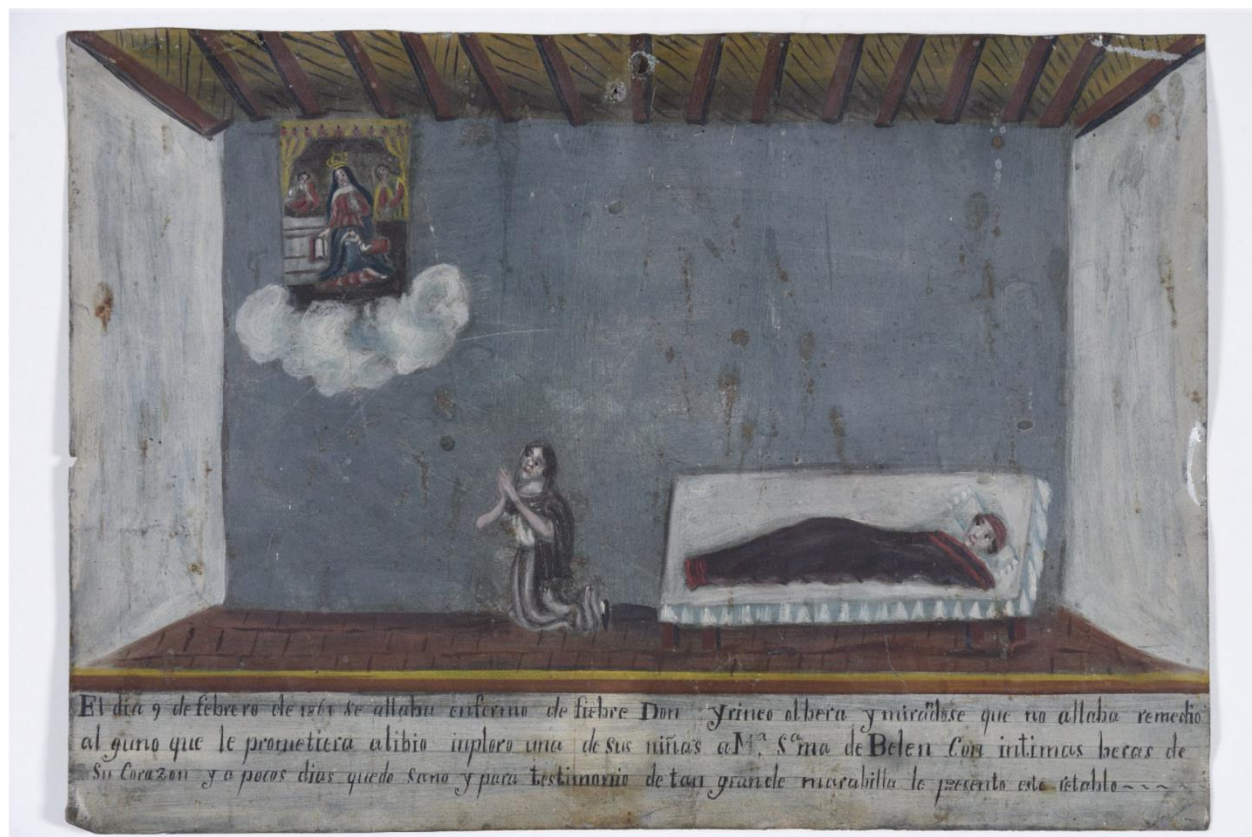 El dia 9 de febrero de 1861 se allaba enfermo de fiebre Don Yrineo olbera y mirādose que no allaba remedio
al guno que le prometiera alibio inploro una de sus niñas a Mª. Sªma de Belen Con intimas beras de
Su Corazon y a pocos dias quedo sano y para testimonio de tan grande marabilla le presento este retablo~~~~